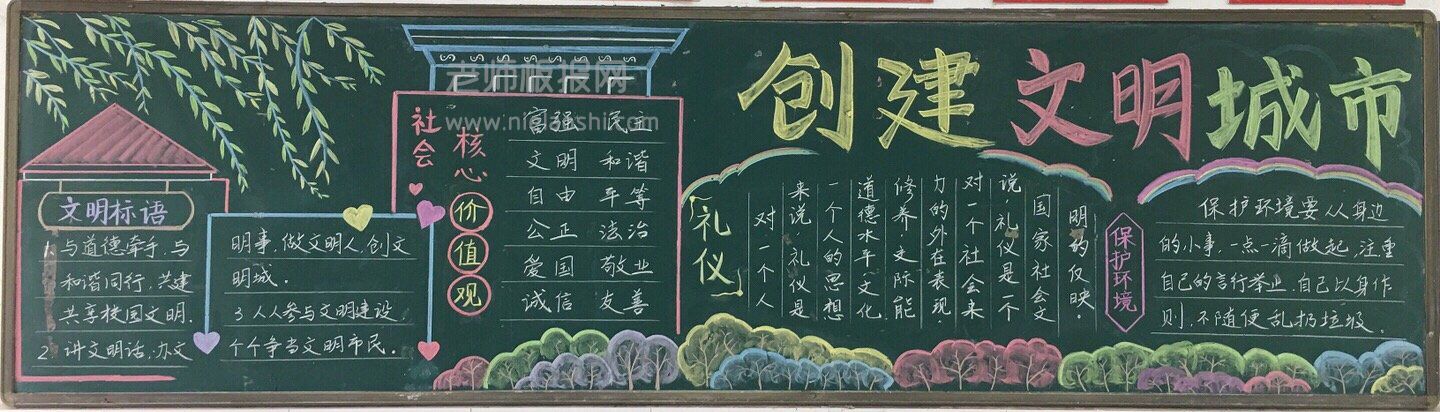 创建文明城市
老师板报网
文明标语
1. 与道德牵手,与
和谐同行,共建
共享校园文明.
2. 讲文明话,办文
明事,做文明人,创文
明城.
3 人人参与文明建设
个个争当文明市民.
社会
核心
价值观
富强 民主
文明 和谐
自由 平等
公正 法治
爱国 敬业
诚信 友善
「礼仪」
对一个人
来说,礼仪是
一个人的思想
道德水平,文化
修养,交际能
力的外在表现.
对一个社会来
说,礼仪是一个
国家社会文
明的反映.
保护环境
保护环境要从身边
的小事,一点一滴做起,注重
自己的言行举止.自己以身作
则,不随便乱扔垃圾.